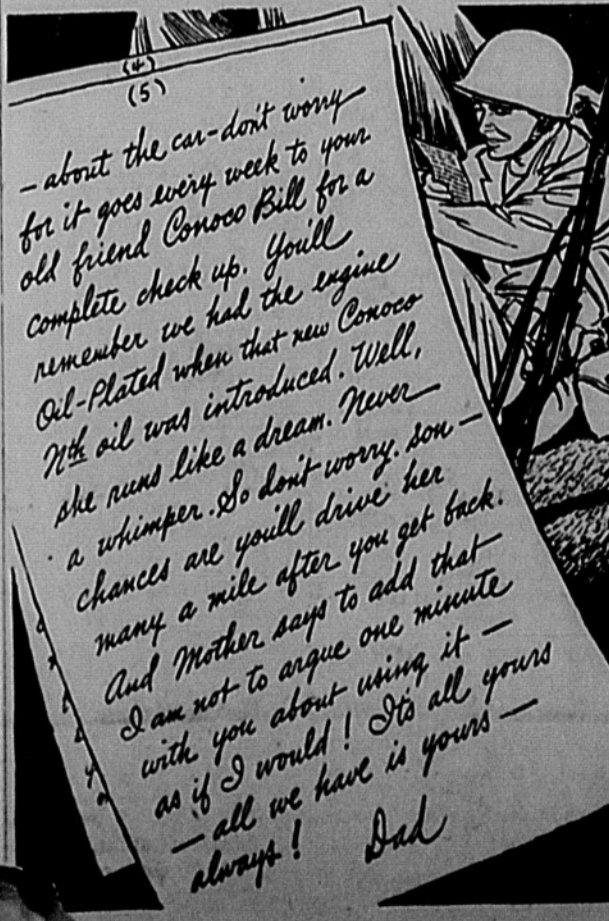 (4)
(5)
— about the car - don't worry
for it goes every week to your
old friend Conoco Bill for a
complete check up. You'll
remember we had the engine
Oil-Plated when that new Conoco
Nth oil was introduced. Well,
she runs like a dream. Never
a whimper. So don't worry. son —
chances are you'll drive her
many a mile after you get back.
And Mother says to add that
I am not to argue one minute
with you about using it —
as if I would! It's all yours
— all we have is yours —
always! Dad